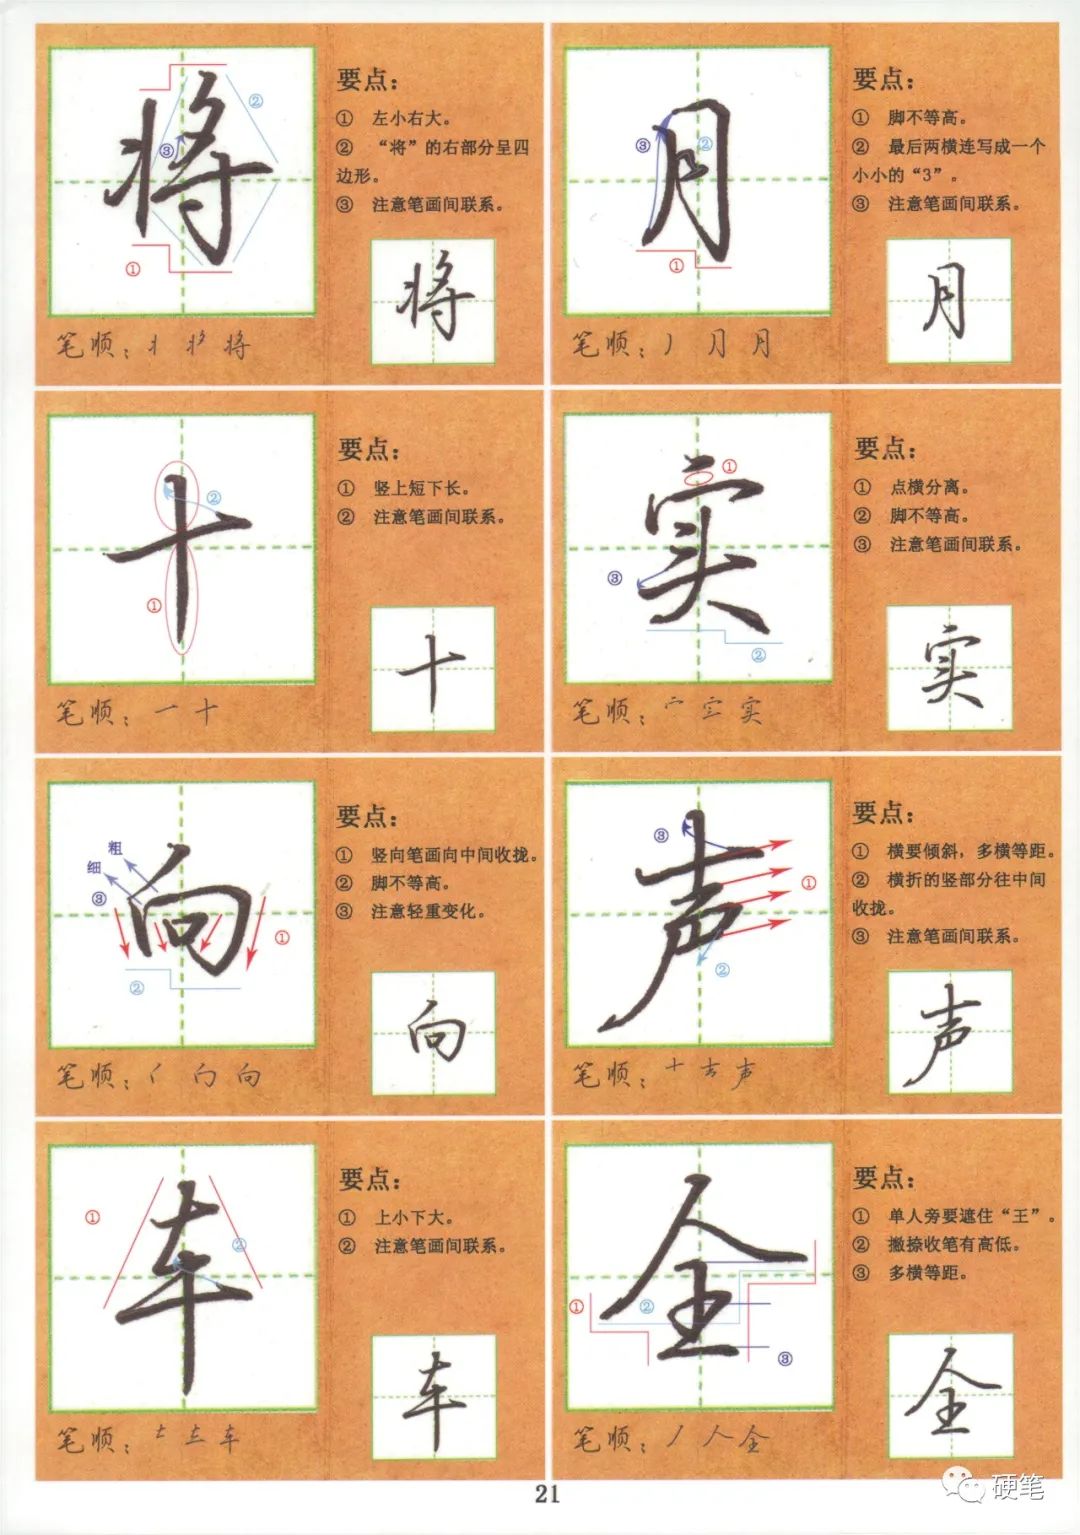 将
要点：
① 左小右大。
② “将”的右部分呈四
边形。
③ 注意笔画间联系。
② ③ ①
将
笔顺：丬 将
月
要点：
① 脚不等高。
② 最后两横连写成一个
小小的“3”。
③ 注意笔画间联系。
③ ② ①
月
笔顺：丿 月 月
十
要点：
① 竖上短下长。
② 注意笔画间联系。
② ①
十
笔顺：一 十
实
要点：
① 点横分离。
② 脚不等高。
③ 注意笔画间联系。
① ③ ②
实
笔顺：宀 实
向
要点：
① 竖向笔画向中间收拢。
② 脚不等高。
③ 注意轻重变化。
粗
细
③ ① ②
向
笔顺：向
声
要点：
① 横要倾斜，多横等距。
② 横折的竖部分往中间
收拢。
③ 注意笔画间联系。
③ ① ②
声
笔顺：十 声
车
要点：
① 上小下大。
② 注意笔画间联系。
① ②
车
笔顺：车
全
要点：
① 单人旁要遮住“王”。
② 撇捺收笔有高低。
③ 多横等距。
① ② ③
全
笔顺：丿 人 全
21
硬笔